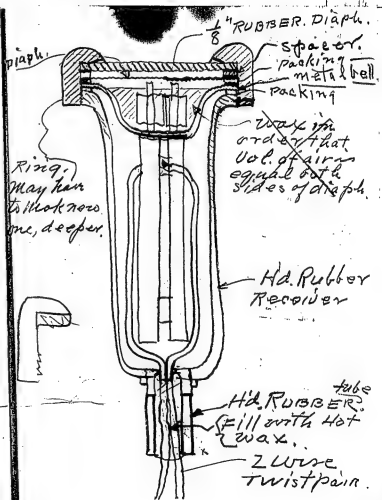 1/8" RUBBER. Diaph.
Diaph.
spacer.
packing
metal bell.
packing
wax in
order that
Vol. of air
equal both
sides of diaph.
Ring.
May have
to make new
one, deeper.
Hd. Rubber
Receiver
Hd. RUBBER. tube
Fill with Hot
wax.
2 wire
twist pair.